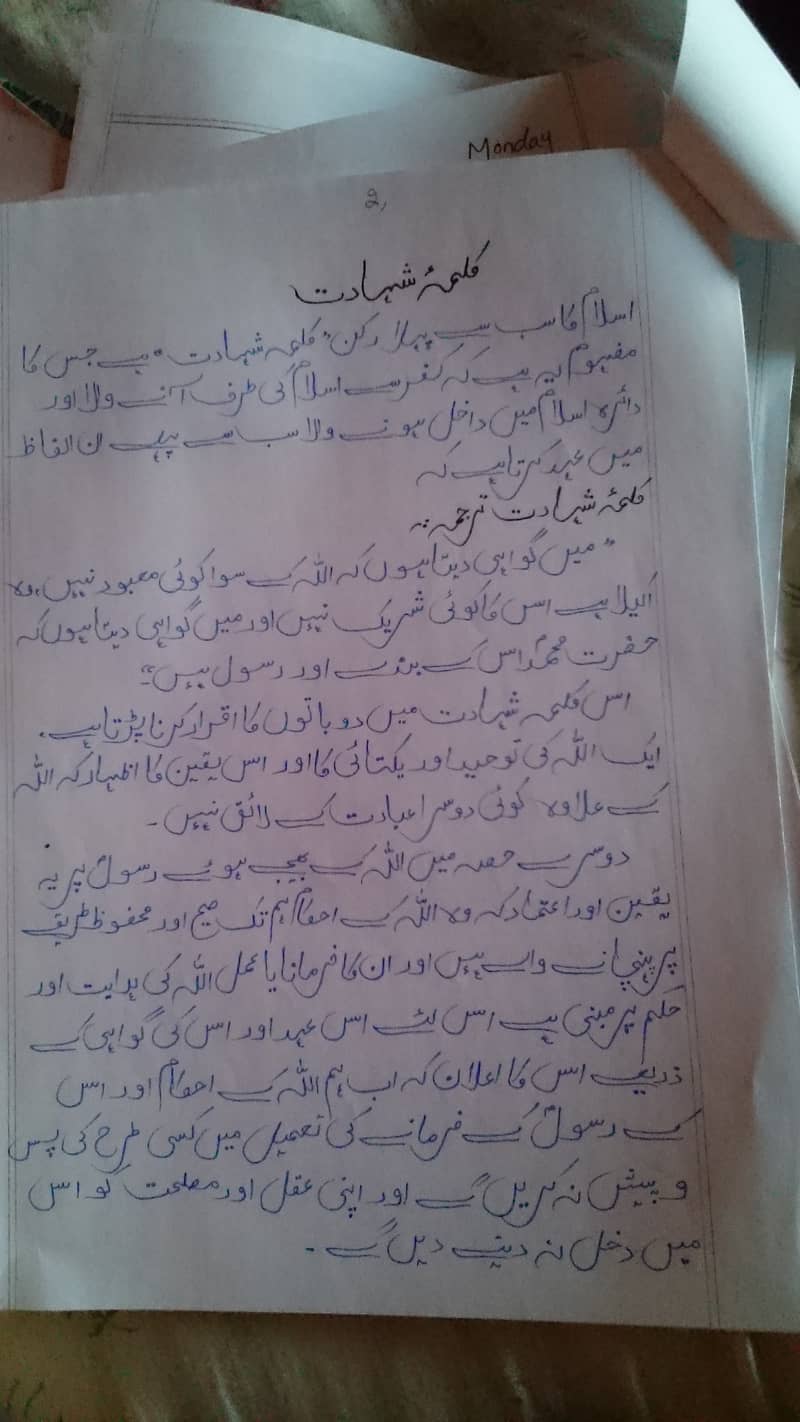 Monday
2,
کلمۂ شہادت
اسلام کا سب سے پہلا رکن "کلمہ شہادت" ہے جس کا
مفہوم یہ ہے کہ کفر سے اسلام کی طرف آنے والا اور
دائرہ اسلام میں داخل ہونے والا سب سے پہلے ان الفاظ
میں عہد کرتا ہے کہ
کلمۂ شہادت ترجمہ :۔
"میں گواہی دیتا ہوں کہ اللہ کے سوا کوئی معبود نہیں، وہ
اکیلا ہے اس کا کوئی شریک نہیں اور میں گواہی دیتا ہوں کہ
حضرت محمدؐ اس کے بندے اور رسول ہیں"۔
اس کلمہ شہادت میں دو باتوں کا اقرار کرنا پڑتا ہے۔
ایک اللہ کی توحید اور یکتائی کا اور اس یقین کا اظہار کہ اللہ
کے علاوہ کوئی دوسرا عبادت کے لائق نہیں ۔
دوسرے حصہ میں اللہ کے بھیجے ہوئے رسولؐ پر یہ
یقین اور اعتماد کہ وہ اللہ کے احکام ہم تک صحیح اور محفوظ طریقے
پر پہنچانے والے ہیں اور ان کا فرمانا یا عمل اللہ کی ہدایت اور
حکم پر مبنی ہے اس لئے اس عہد اور اس کی گواہی کے
ذریعے اس کا اعلان کہ اب ہم اللہ کے احکام اور اس
کے رسولؐ کے فرمانے کی تعمیل میں کسی طرح کی پس
و پیش نہ کریں گے اور اپنی عقل اور مصلحت کو اس
میں دخل نہ دینے دیں گے ۔